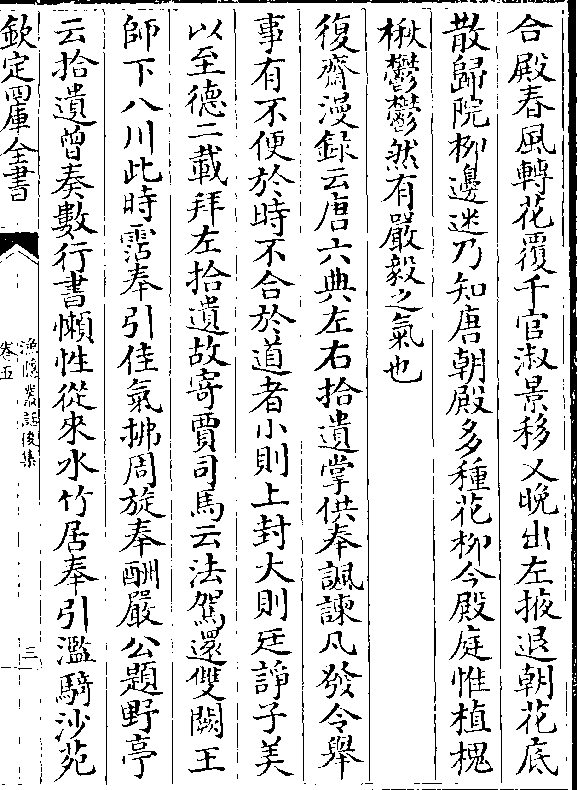 合殿春風轉花覆千官淑景移又晚出左掖退朝花底
散歸院柳邊迷乃知唐朝殿多種花柳今殿庭惟植槐
楸鬱鬱然有嚴毅之氣也
復齋漫錄云唐六典左右拾遺掌供奉諷諫凡發令舉
事有不便於時不合於道者小則上封大則廷諍子美
以至德二載拜左拾遺故寄賈司馬云法駕還雙闕王
師下八川此時霑奉引佳氣拂周旋奉酬嚴公題野亭
云拾遺曾奏數行書懶性從來水竹居奉引濫騎沙苑
欽定四庫全書
漁隱叢話後集
卷五
三